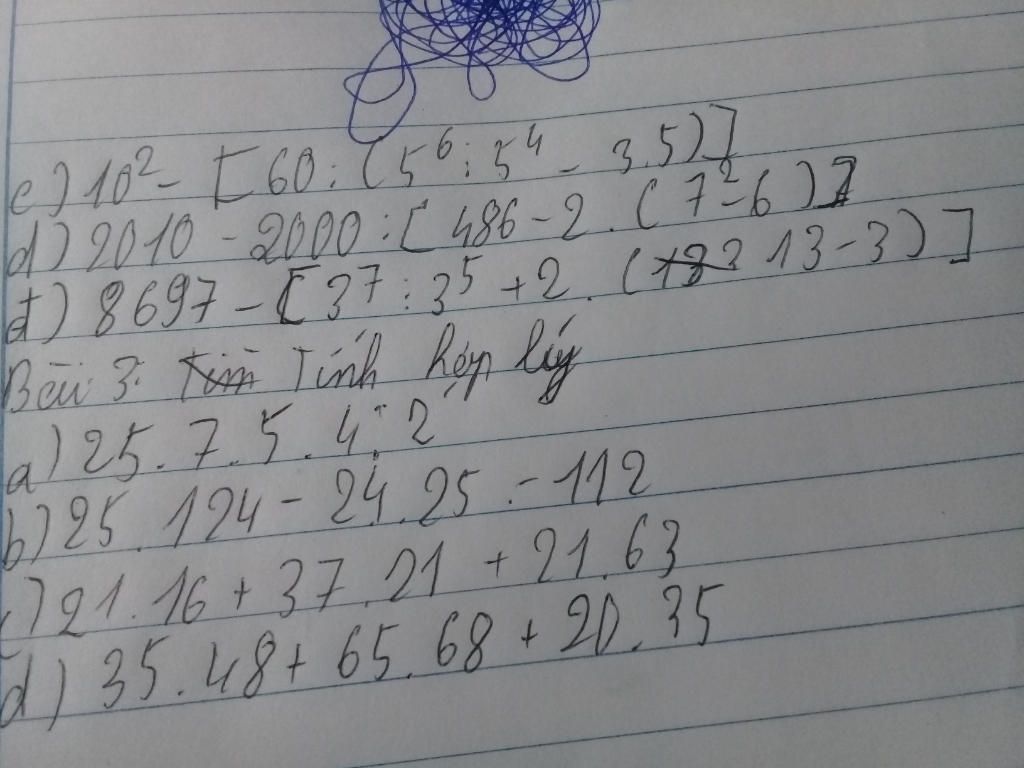 c) 10² - [60 : (5⁶ : 5⁴ - 3.5)]
d) 2010 - 2000 : [486 - 2. (7² - 6)]
đ) 8697 - [3⁷ : 3⁵ + 2. (13 - 3)]
Bài 3: Tính hợp lý
a) 25. 7. 5. 4. 2
b) 25. 124 - 24. 25 - 112
c) 21. 16 + 37. 21 + 21. 63
d) 35. 48 + 65. 68 + 20. 35